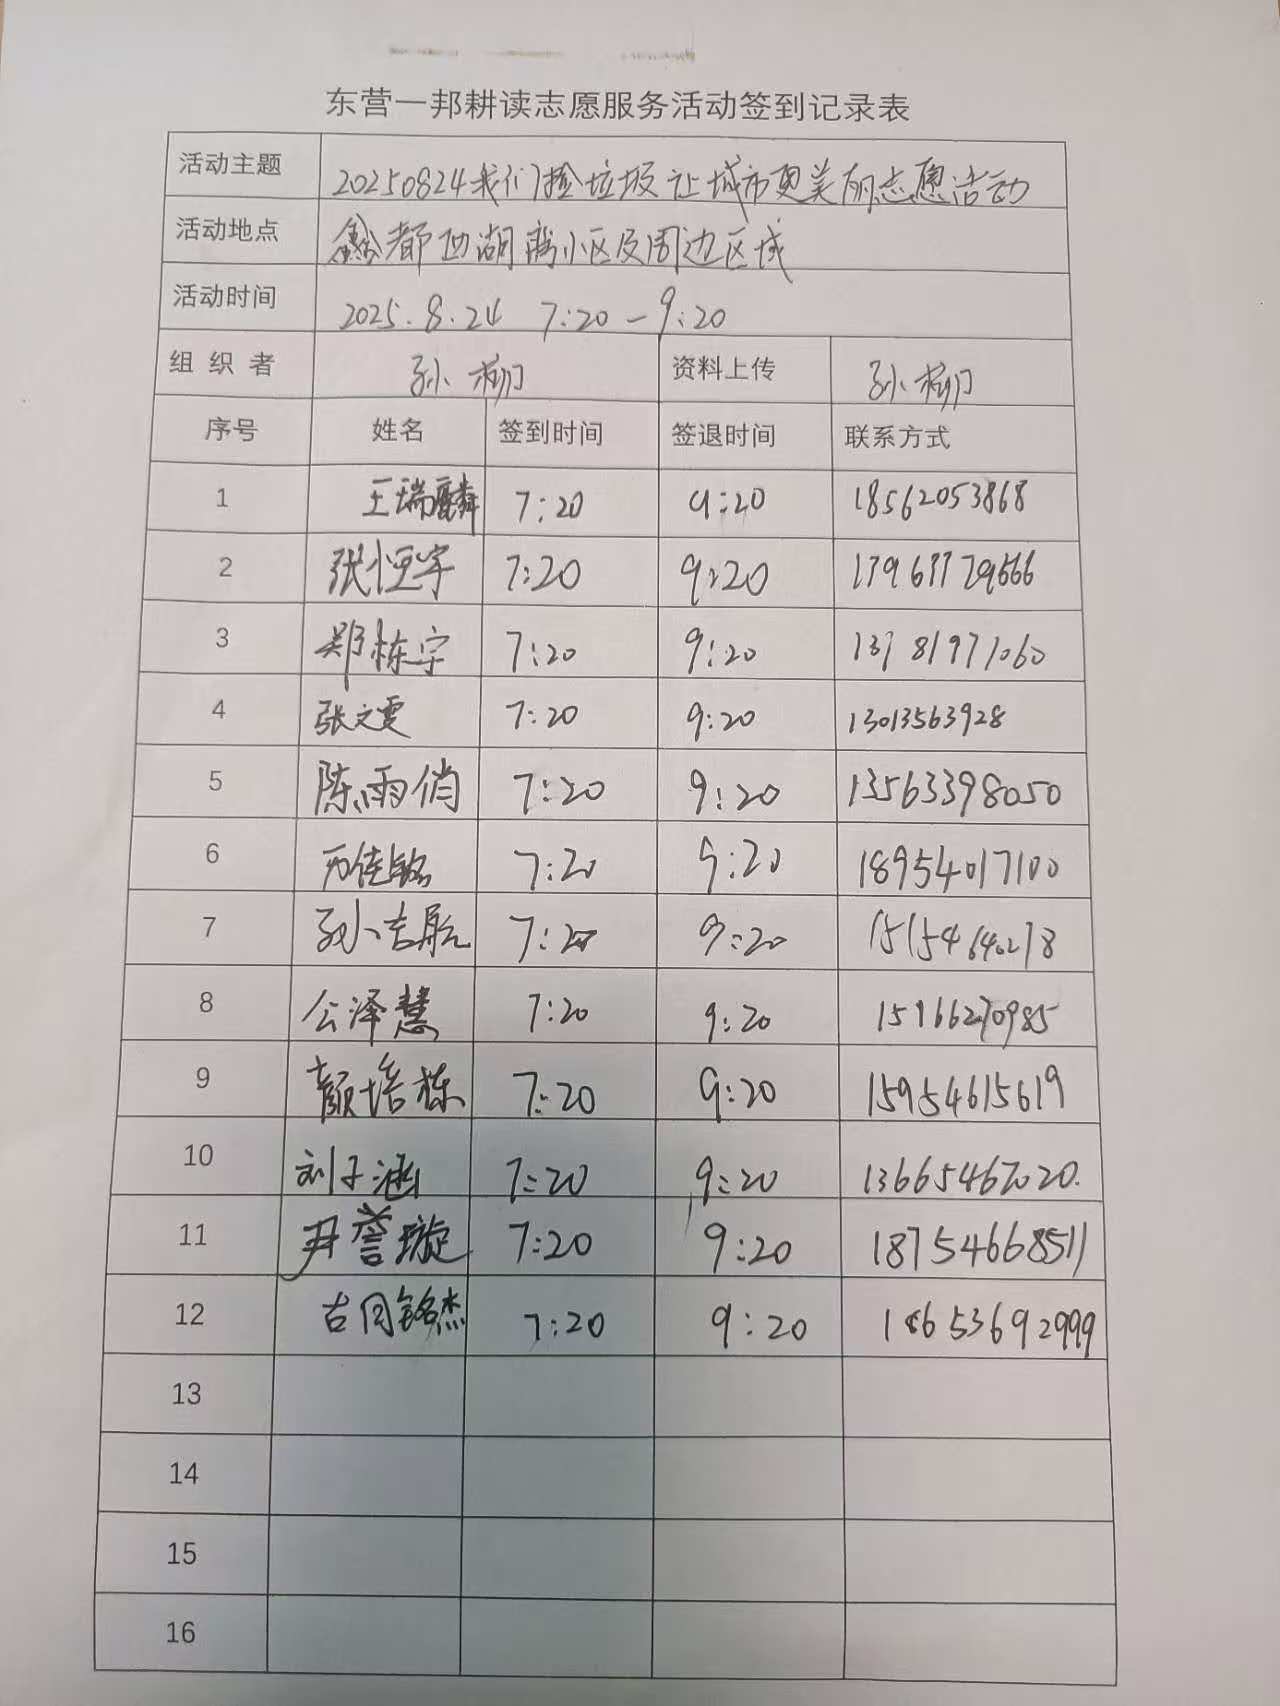 东营一邦耕读志愿服务活动签到记录表
活动主题 20250824我们捡垃圾 让城市更美丽志愿活动
活动地点 鑫都西湖湾小区及周边区域
活动时间 2025.8.24 7:20-9:20
组织者 孙柳 资料上传 孙柳
序号 姓名 签到时间 签退时间 联系方式
1 王瑞麟 7:20 9:20 18562053868
2 张恒宇 7:20 9:20
3 郑栋宇 7:20 9:20
4 张文雯 7:20 9:20 13013563928
5 陈雨俏 7:20 9:20 13563398050
6 7:20 9:20 18954017100
7 孙吉航 7:20 9:20
8 公泽慧 7:20 9:20 15966270985
9 颜培栋 7:20 9:20 15954615619
10 刘子涵 7:20 9:20 13665467020.
11 尹誉璇 7:20 9:20 18754668511
12 7:20 9:20 18653692999
13
14
15
16